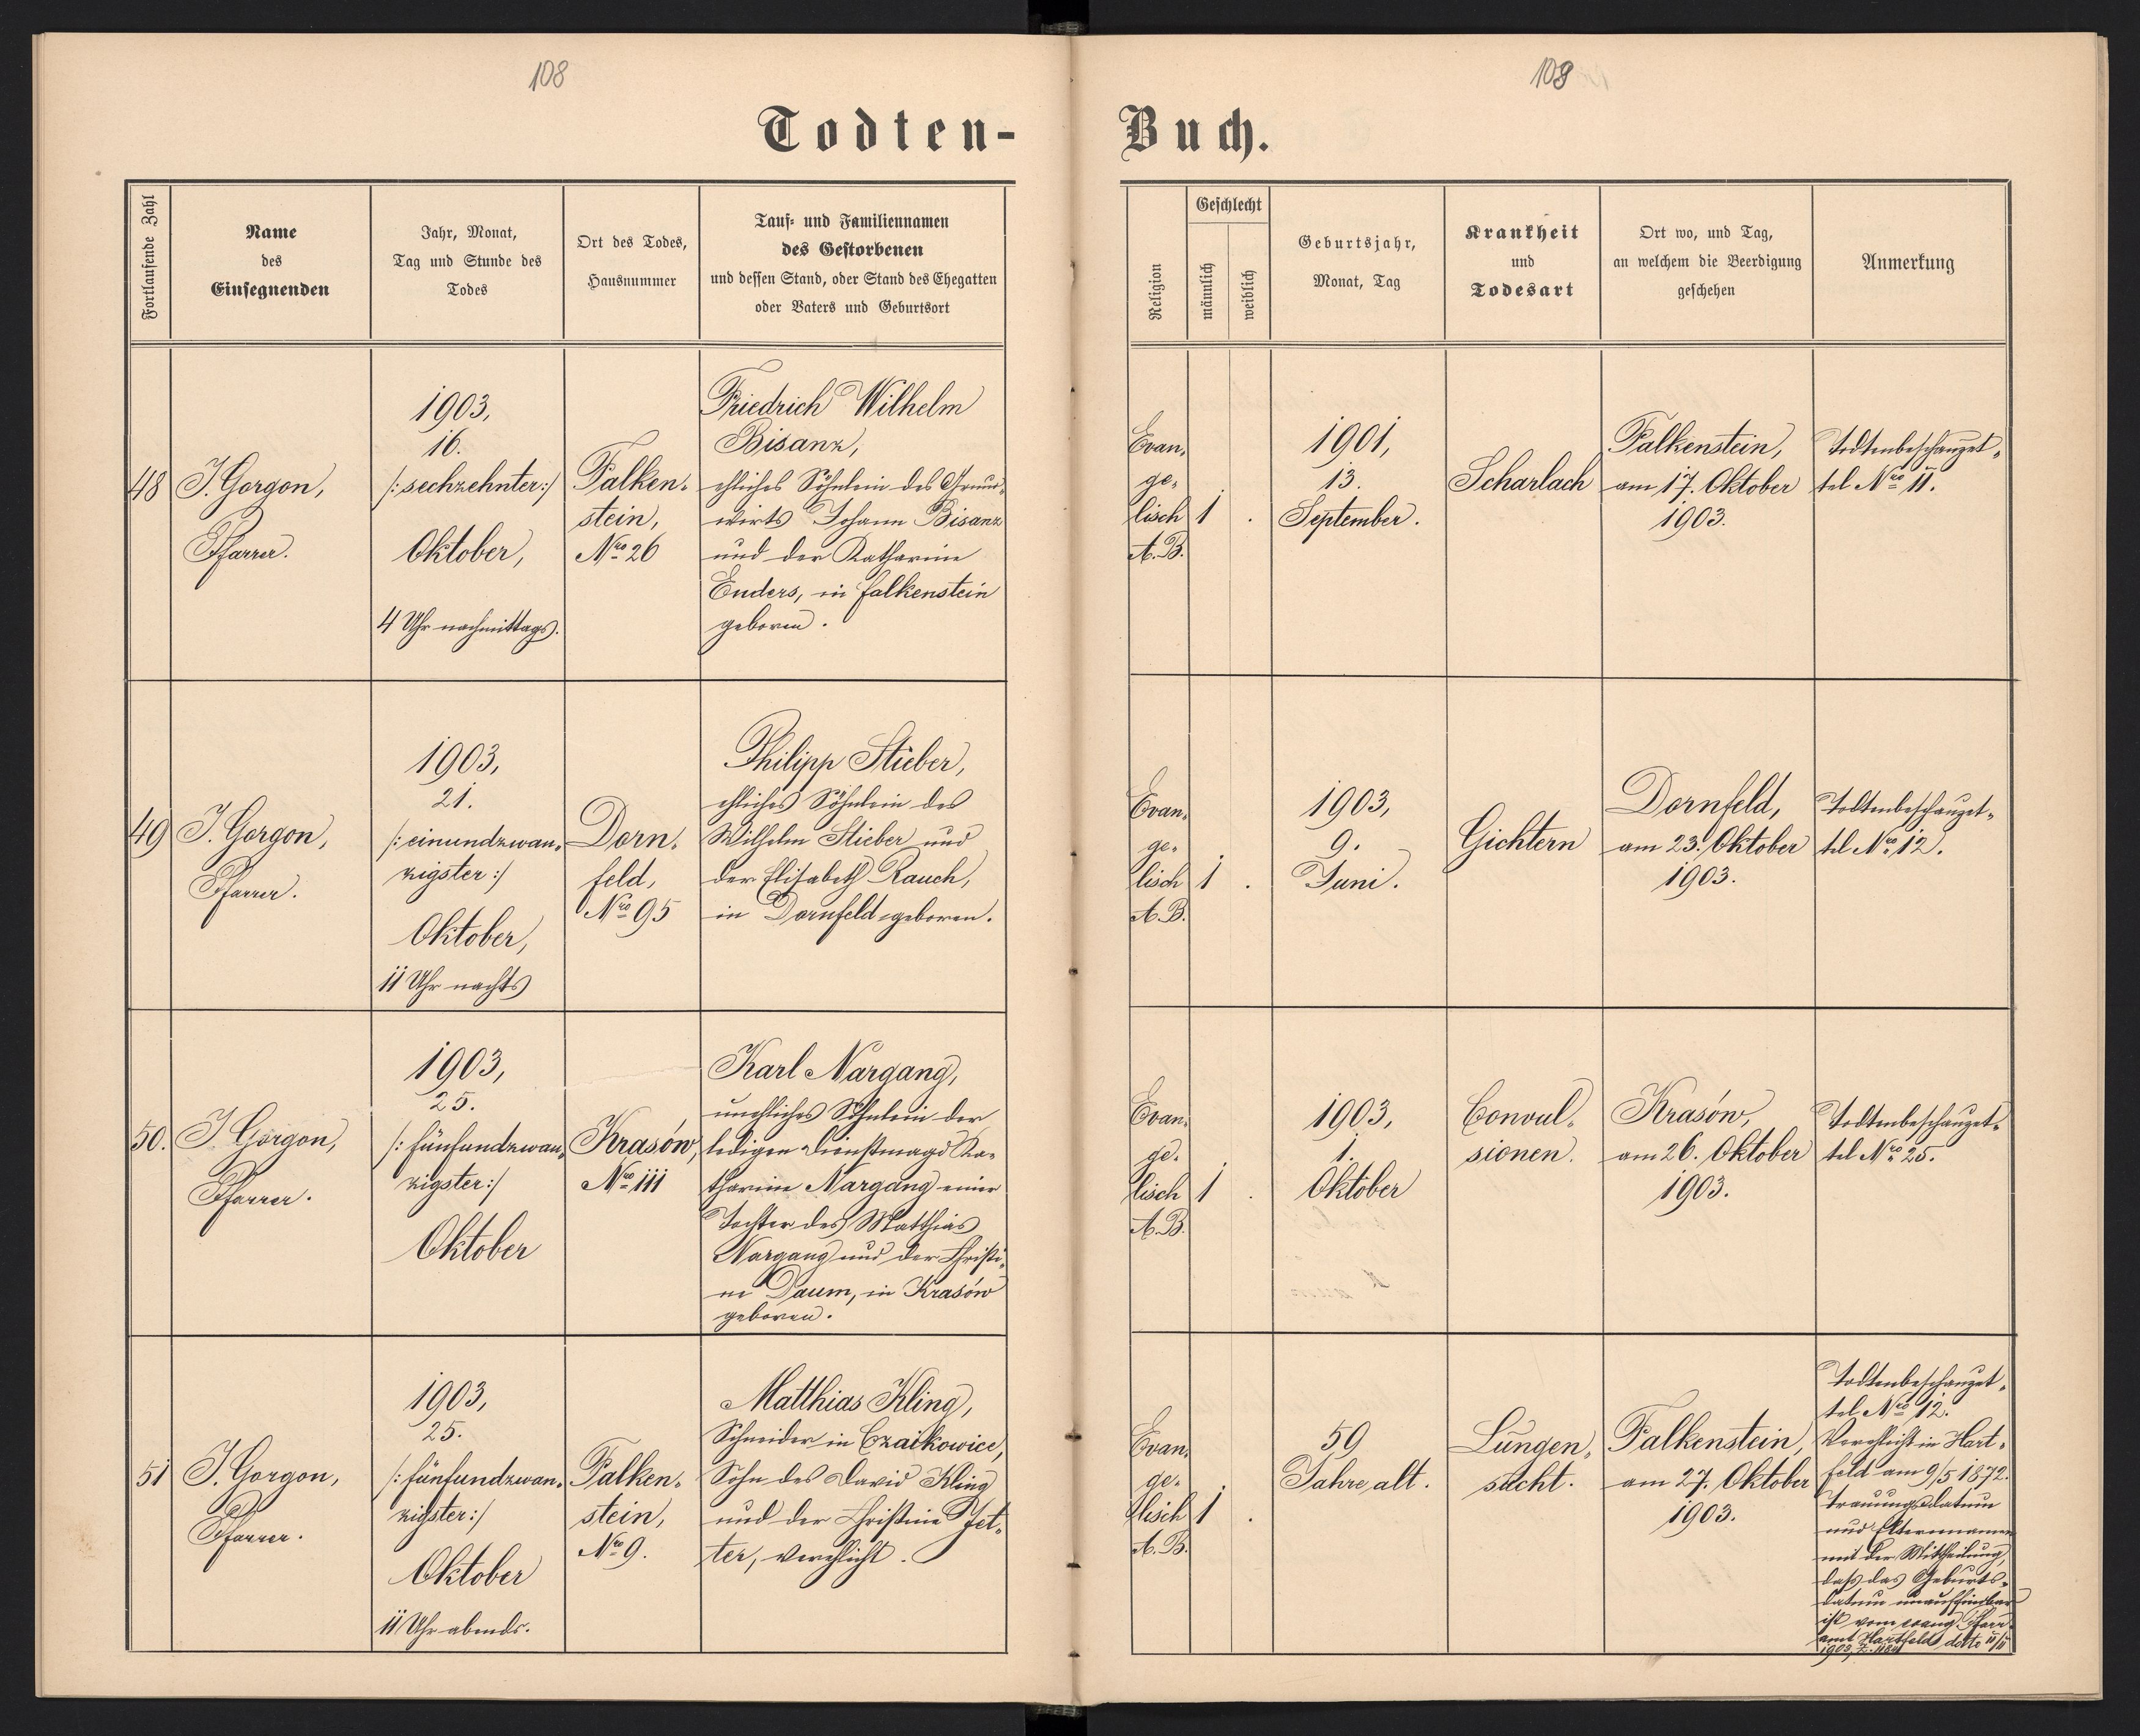 108
108
Todten-
Buch.
Fortlaufende Zahl
Name
des
Einsegnenden
Jahr, Monat,
Tag und Stunde des
Todes
Ort des Todes,
Hausnummer
Tauf- und Familiennamen
des Gestorbenen
und dessen Stand, oder Stand des Ehegatten
oder Vaters und Geburtsort
Religion
Geschlecht
männlich
weiblich
Geburtsjahr,
Monat, Tag
Krankheit
und
Todesart
Ort wo, und Tag,
an welchem die Beerdigung
geschehen
Anmerkung
48
J. Gorgon,
Pfarrer.
1903,
16.
/: sechzehnter :/
Oktober,
4 Uhr nachmittags.
Falken-
stein,
Nro 26
Friedrich Wilhelm
Bisanz,
ehliches Söhnlein des Grund-
wirts Johann Bisanz
und der Katharine
Enders, in Falkenstein
geboren.
Evan-
ge-
lisch
A.B.
1
.
1901,
13.
September.
Scharlach
Falkenstein,
am 17. Oktober
1903.
Todtenbeschauzet-
tel Nro 11.
49
J. Gorgon,
Pfarrer.
1903,
21.
/: einundzwan-
zigster :/
Oktober,
11 Uhr nachts
Dorn-
feld,
Nro 95
Philipp Stieber,
ehliches Söhnlein des
Wilhelm Stieber und
der Elisabeth Rauch,
in Dornfeld geboren.
Evan-
ge-
lisch
A.B.
1
.
1903,
9.
Juni.
Gichtern
Dornfeld,
am 23. Oktober
1903.
Todtenbeschauzet-
tel Nro 12.
50.
J. Gorgon,
Pfarrer.
1903,
25.
/: fünfundzwan-
zigster :/
Oktober
Krasów,
Nro 111
Karl Nargang,
unehliches Söhnlein der
ledigen Dienstmagd Ka-
tharine Nargang einer
Tochter des Matthias
Nargang und der Christi-
ne Daum, in Krasów
geboren.
Evan-
ge-
lisch
A.B.
1
.
1903,
1.
Oktober
Convul-
sionen.
Krasów,
am 26. Oktober
1903.
Todtenbeschauzet-
tel Nro 25.
51
J. Gorgon,
Pfarrer.
1903,
25.
/: fünfundzwan-
zigster :/
Oktober
11 Uhr abends.
Falken-
stein,
Nro 9.
Matthias Kling,
Schneider in Czaikowice,
Sohn des David Kling
und der Christine Jet-
ter, verehlicht.
Evan-
ge-
lisch
A.B.
1
.
59
Jahre alt.
Lungen-
sucht.
Falkenstein,
am 27. Oktober
1903.
Todtenbeschauzet-
tel Nro 12.
Verehlicht in Hart-
feld am 9/5 1872.
Trauungsdatum
und Elternnamen
mit der Mittheilung,
dass das Geburts-
datum unauffindbar
ist vom evang. Pfarr-
amt Hartfeld ddto 11/11
1903, Z.